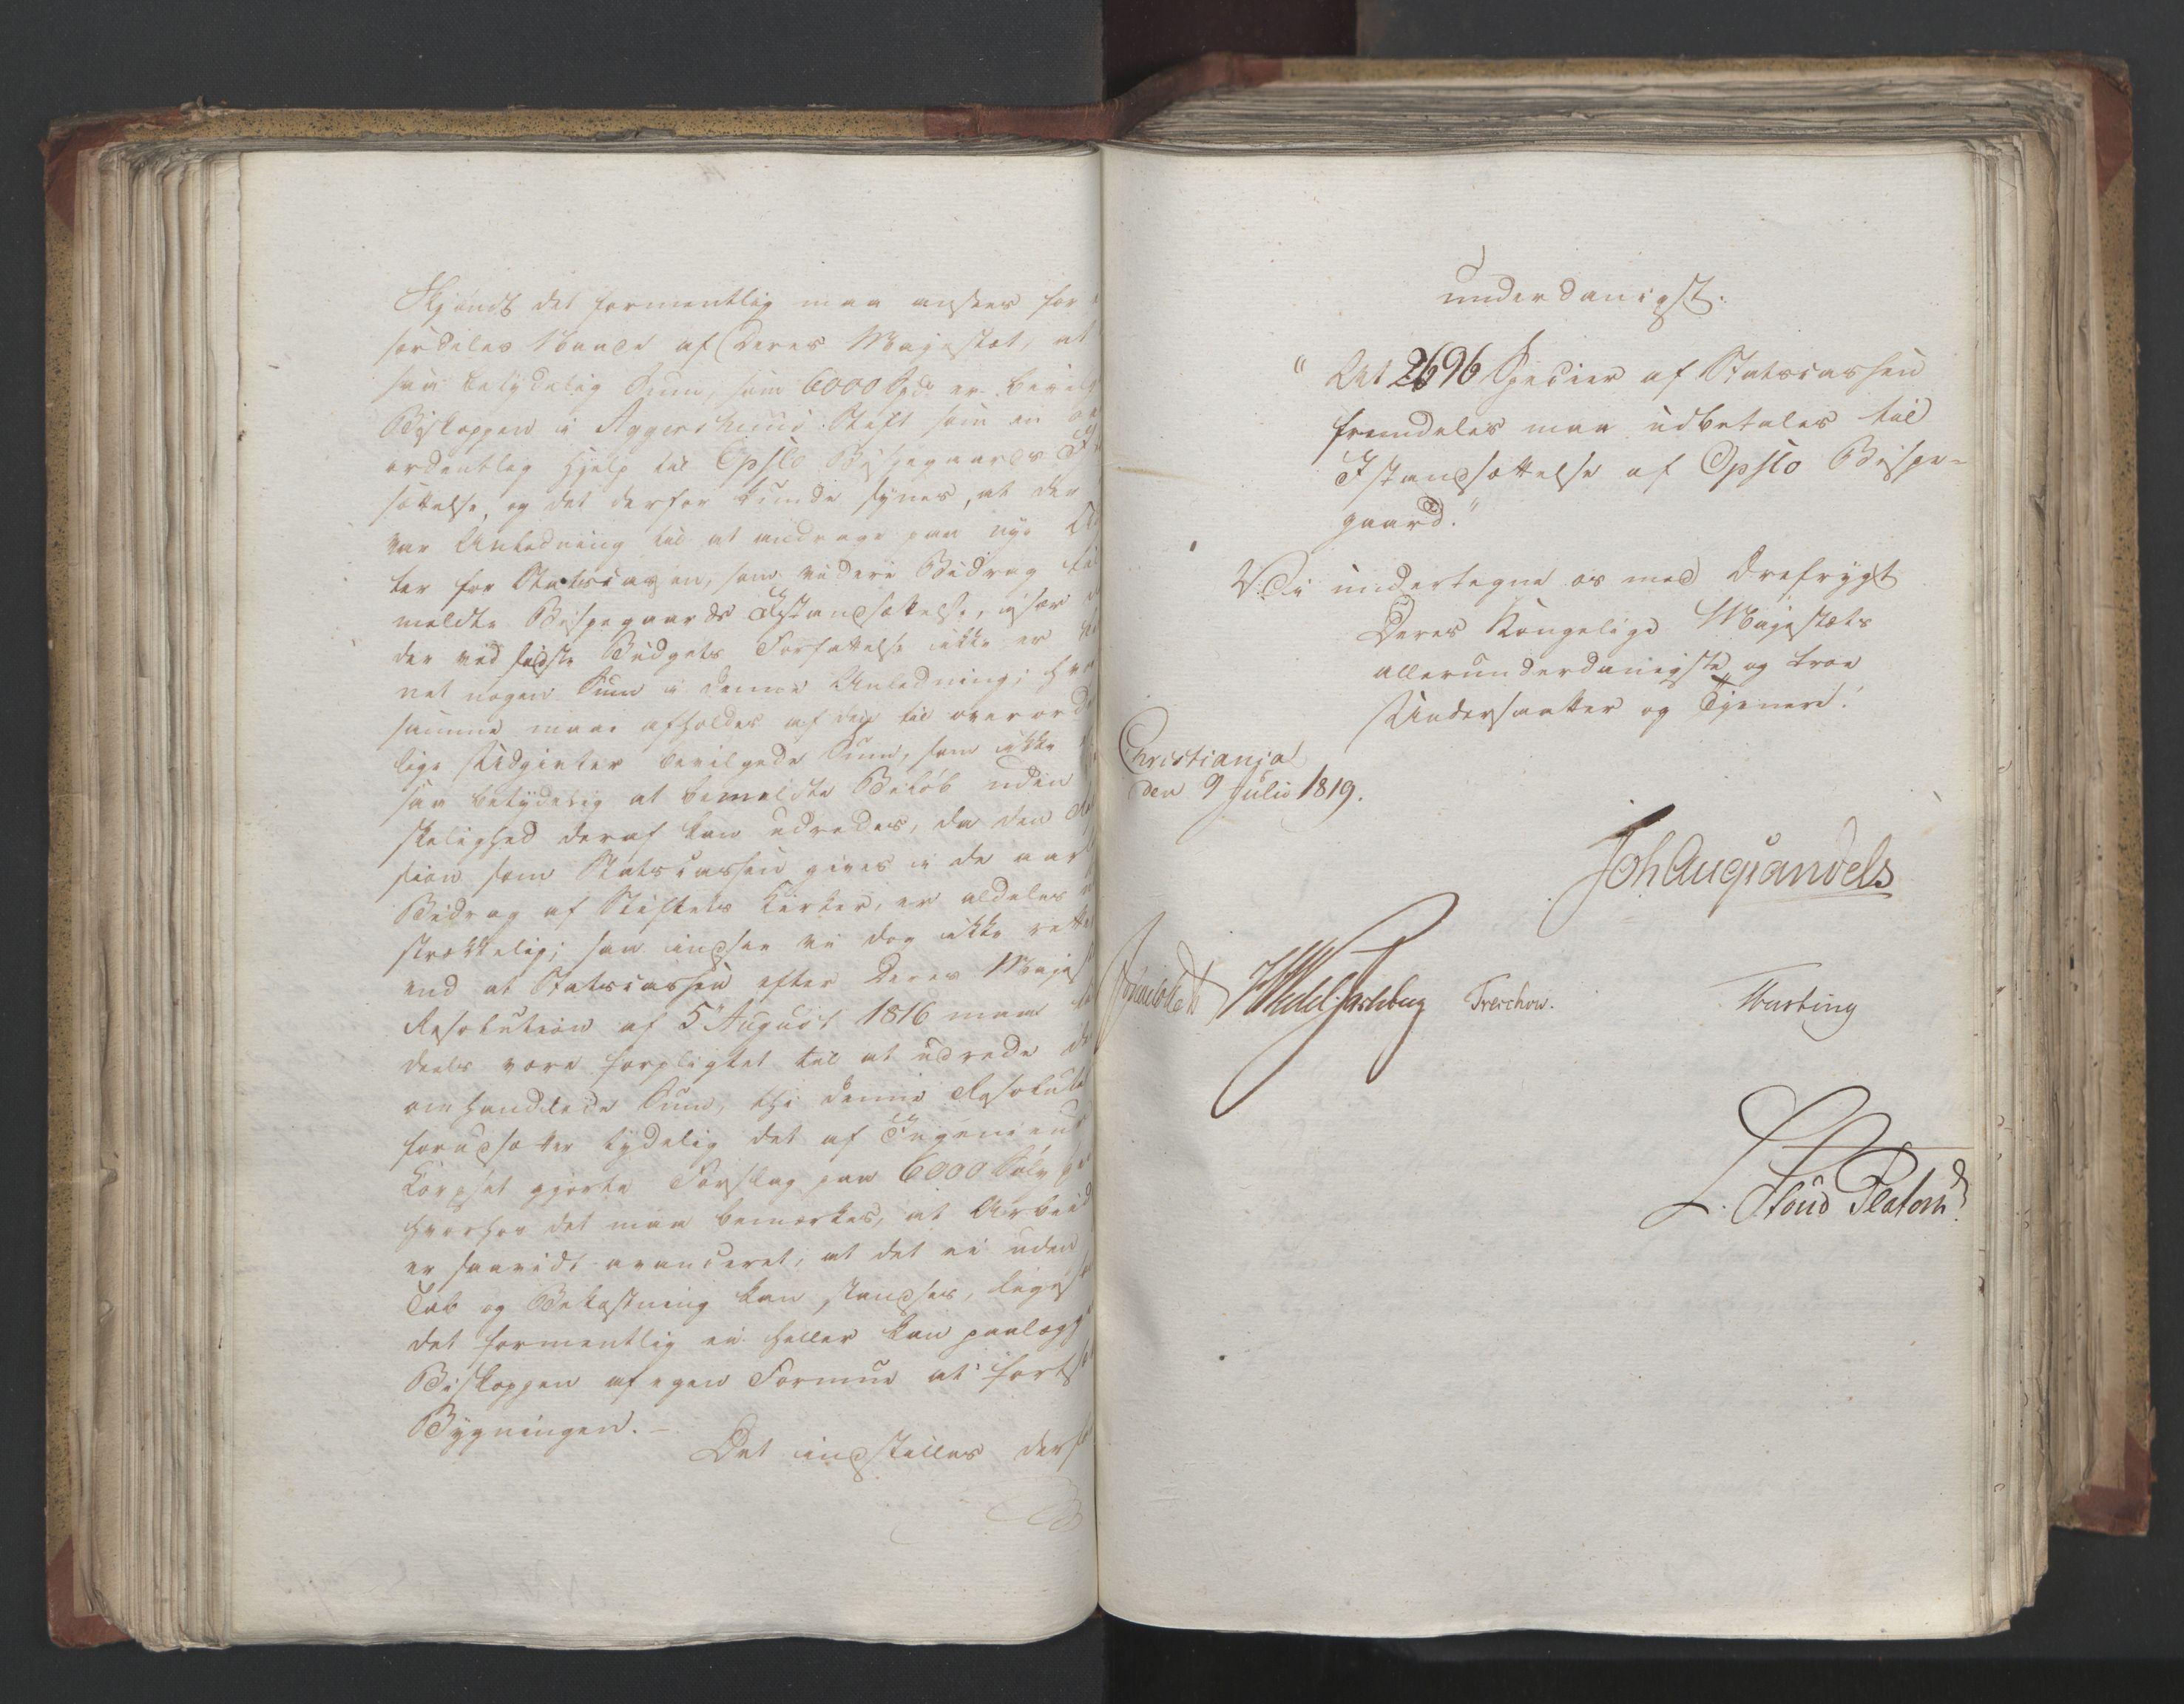 Skjöndt det formentlig maa ansees for
særdeles Naade af Deres Majestæt, at
saa betydelig Sum, som 6000 Spd: er bevilg
Biskoppen i Aggershuus Stift som en
ordentlig Hjelp til Opslo Bispegaards
sættelse, og det derfor kunde synes, at der
var Anledning til at andrage paa nye
ter for Statscassen, som videre Bidrag til
meldte Bispegaards Istandsættelse, især
der ved sidste Budgets Forfattelse ikke er
net nogen Sum i denne Anledning; hvor
samme maae afholdes af den til overord
lige Udgivter bevilgede Sum, som ikke
saa betydelig at bemeldte Beløb uden
skelighed deraf kan udredes, da den
sion som Statscassen gives i de aarl
Bidrag af Stiftets Kirker, er aldeles
strækkelig; saa indsee vi dog ikke rette
end at Statscassen efter Deres Majest
Resolution af 5 August 1816 maa
deels være forpligtet til at udrede
omhandlede Sum, thi denne Resolut
forudsætter tydelig det af Ingenieur
Corpset gjorte Forslag paa 6000 Sølv
hvorhos det maa bemærkes, at Arbeid
er saavidt avanceret, at det ei uden
Tab og Bekostning kan standses, ligesom
det formentlig ei heller kan paalægge
Biskoppen af egen Formue at forts
Bygningen. –
Det indstilles derfor
underdanigst:
"At 2696 Specier af Statscassen
fremdeles maa udbetales til
Istandsættelse af Opslo Bispe-
gaard."
Vi undertegne os med Ærefrygt
Deres Kongelige Majestæts
allerunderdanigste og troe
Undersaatter og Tjenere!
Christiania
den 9 Julii 1819.
Joh Aug Sandels
Sommerhielm HWedelJarlsberg Treschow. Fasting
L. Stoud Platou